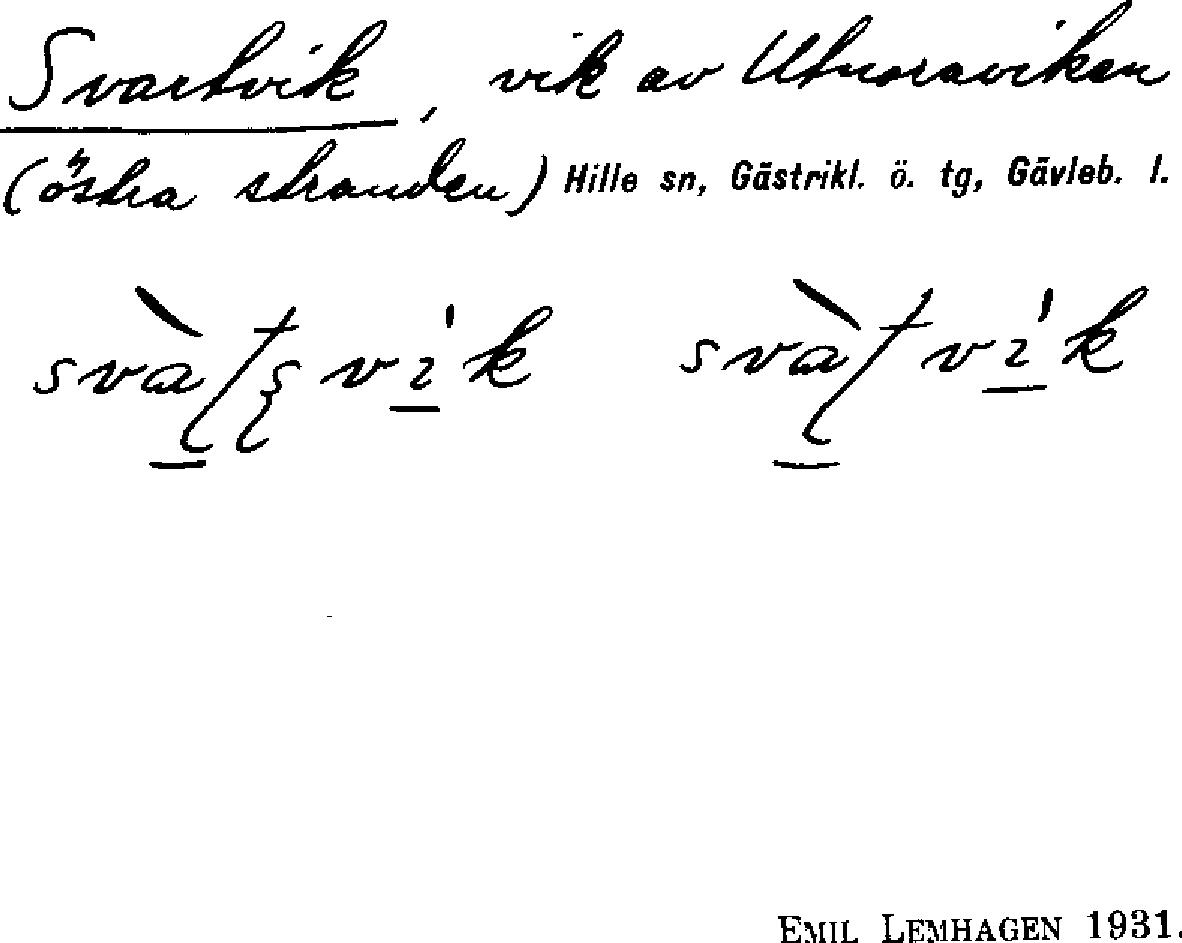 Svartvik, vik av Utnoraviken
(östra stranden) Hille sn, Gästrikl. ö. tg, Gävleb. l.
EMIL LEMHAGEN 1931.